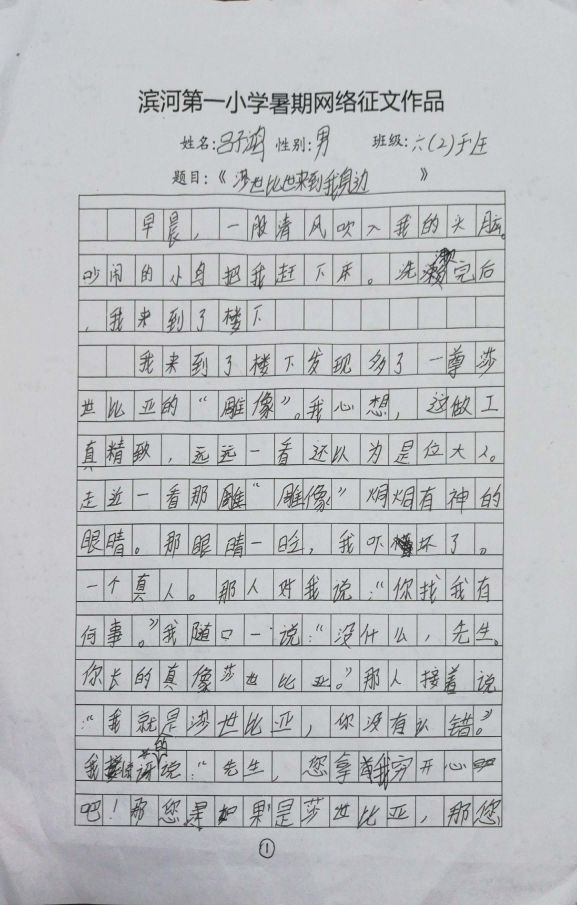 滨河第一小学暑期网络征文作品
姓名：吕子鸿 性别：男 班级：六（2）班
题目：《莎世比亚来到我身边》
早晨，一股清风吹入我的大脑。
吵闹的小鸟把我赶下床。洗漱完后
，我来到了楼下
我来到了楼下发现多了一尊莎
世比亚的“雕像”。我心想，这做工
真精致，远远一看还以为是位大人。
走近一看那雕“雕像”炯炯有神的
眼睛。那眼睛一眨，我吓坏了。
一个真人。那人对我说：“你找我有
何事。”我随口一说：“没什么，先生。
你长的真像莎世比亚。”那人接着说
：“我就是莎世比亚，你没有认错。”
我惊讶的说：“先生，您拿我穷开心
吧！那您如果是莎世比亚，那您
①